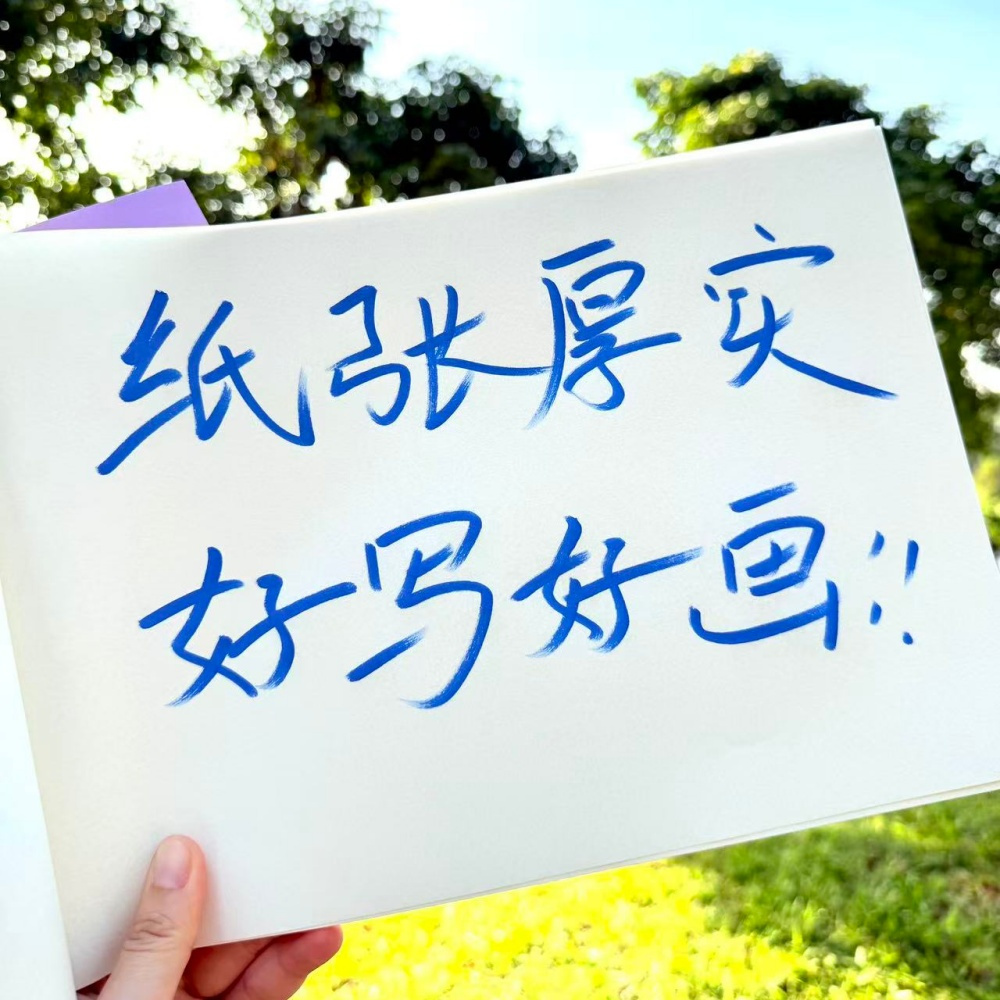 纸张厚实
好写好画!!